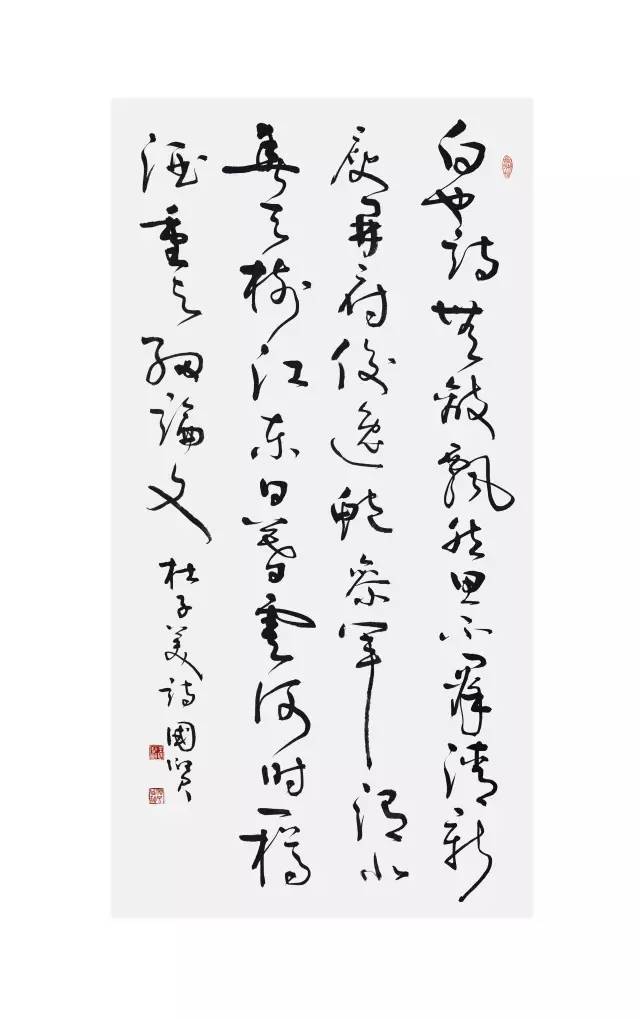 白也詩無敵飄然思不羣清新
庾開府俊逸鮑參軍渭北
春天樹江東日暮雲何時一樽
酒重與細論文
杜子美詩國賢